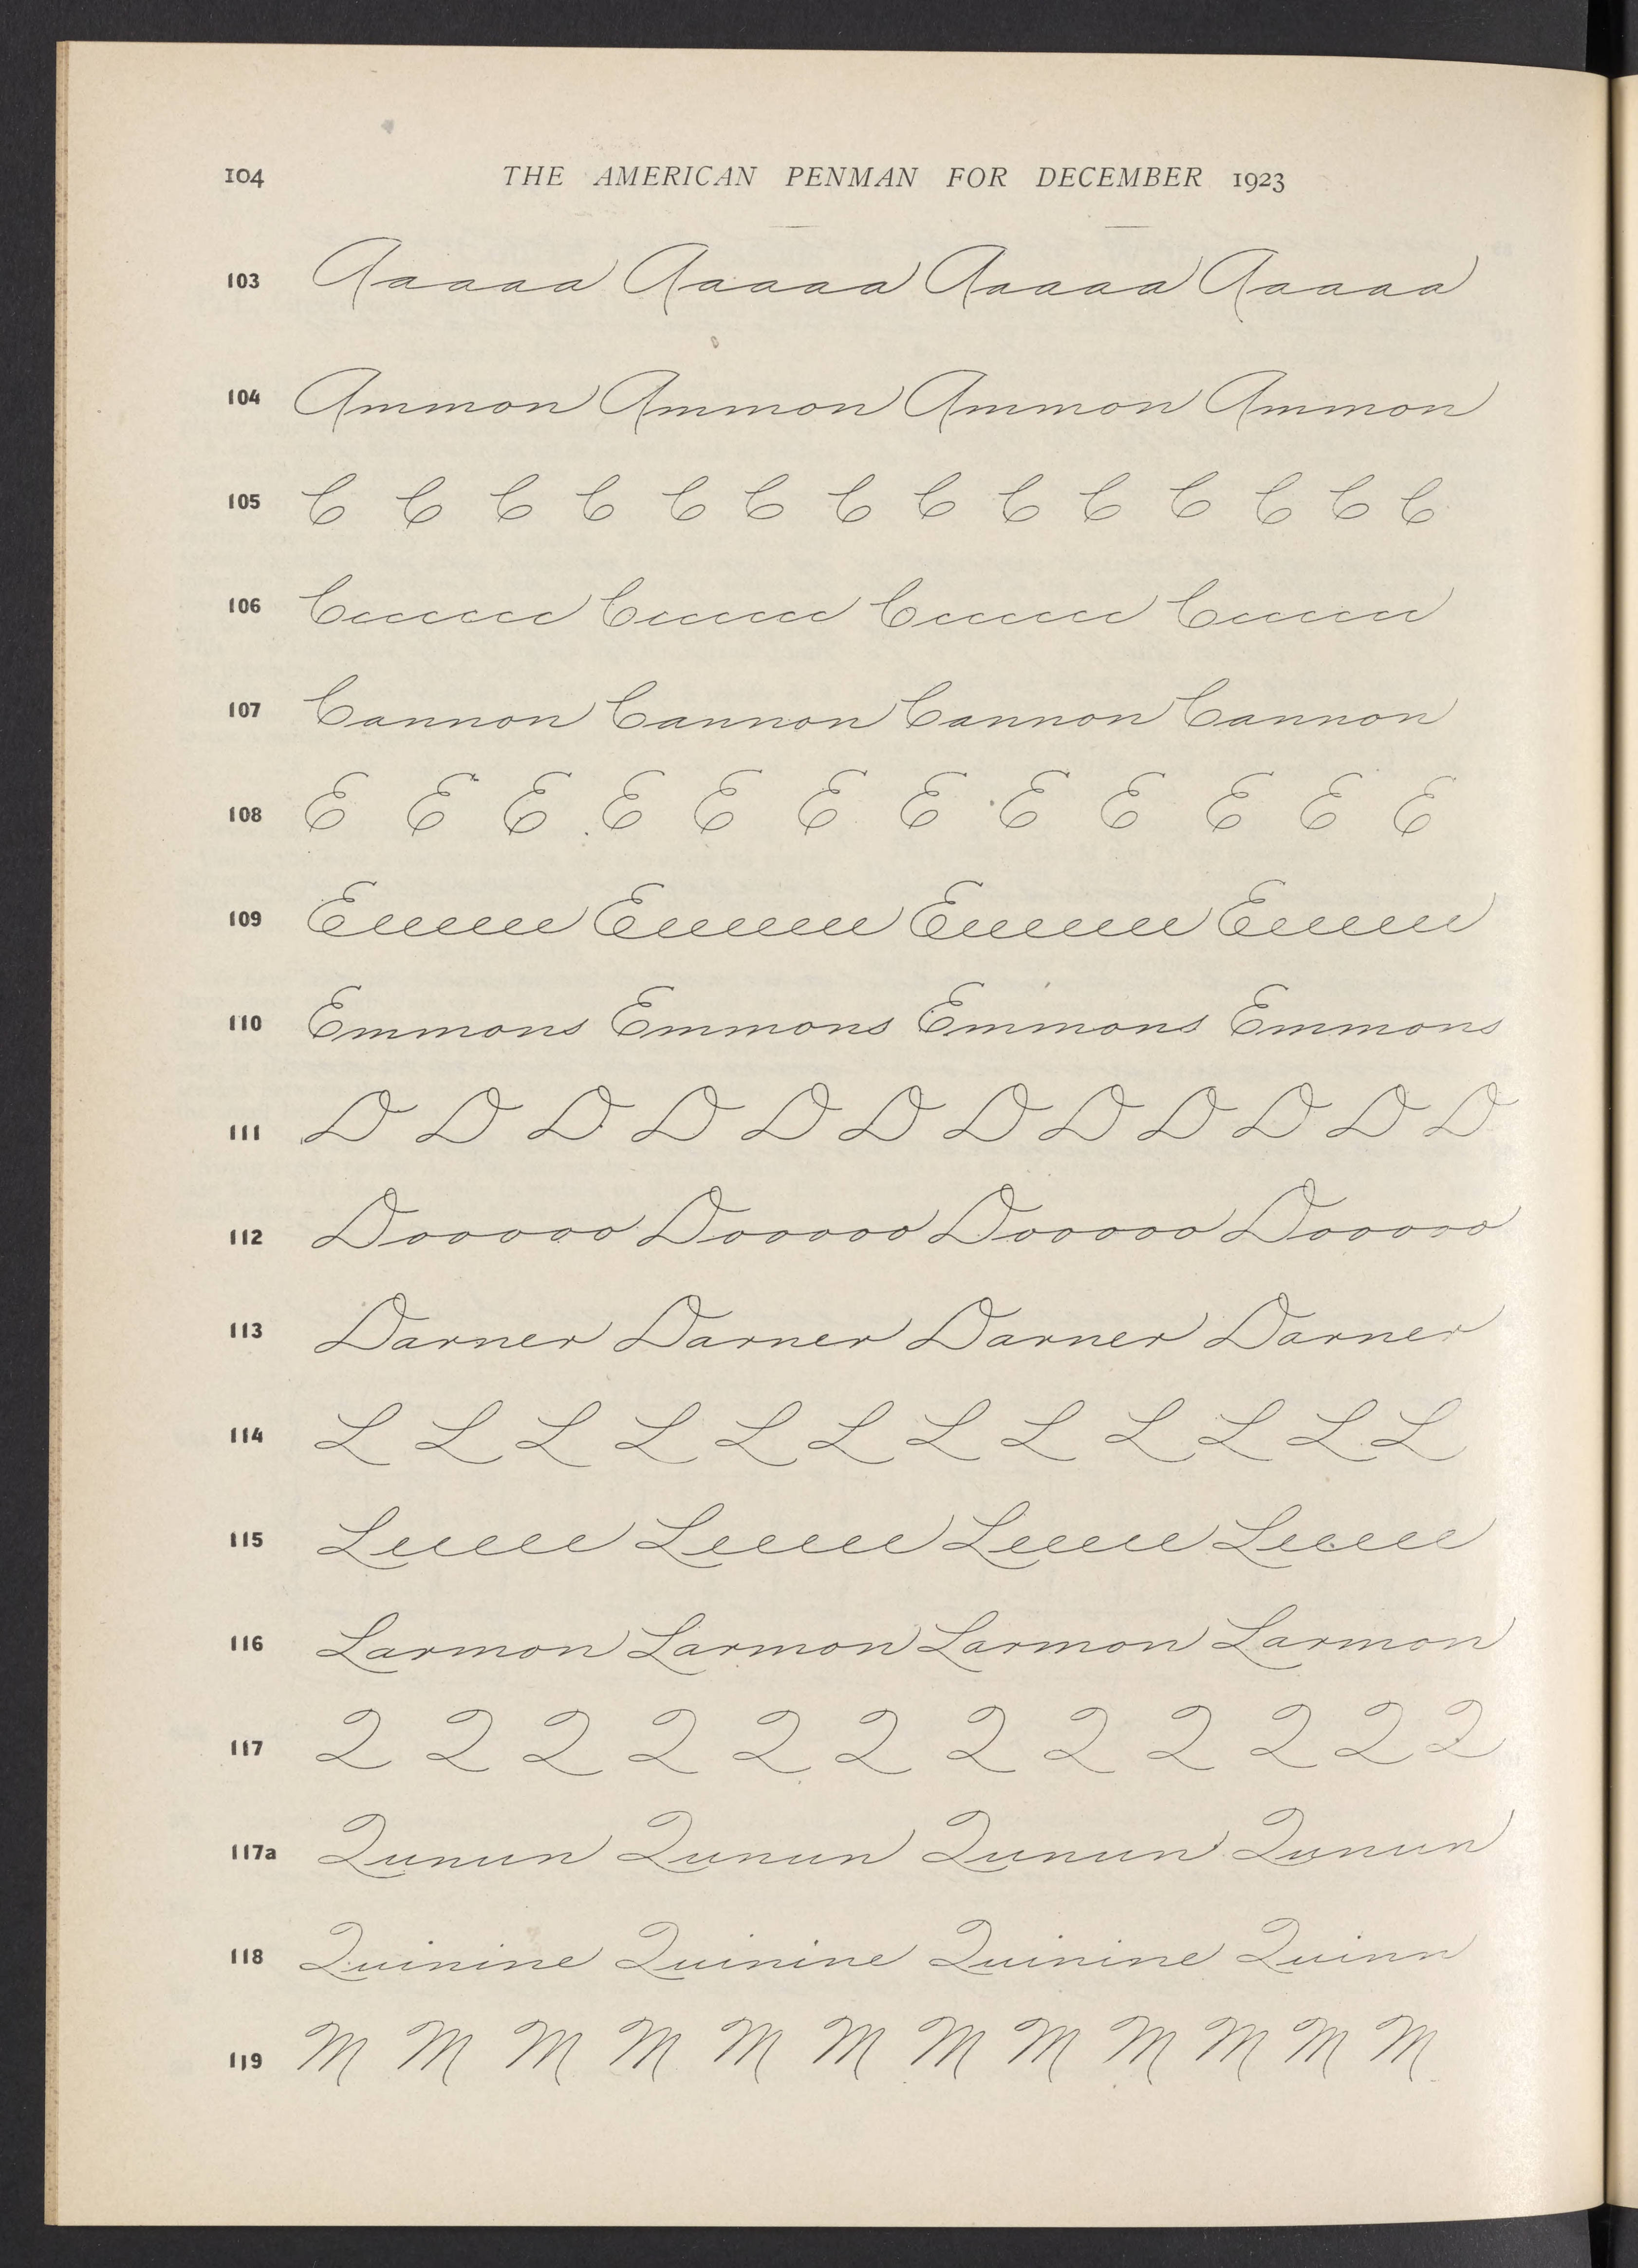 104 THE AMERICAN PENMAN FOR DECEMBER 1923
103 Aaaaa Aaaaa Aaaaa Aaaaa
104 Ammon Ammon Ammon Ammon
105 C C C C C C C C C C C C C C
106 Ccccccc Ccccccc Ccccccc Ccccccc
107 Cannon Cannon Cannon Cannon
108 E E E E E E E E E E E E
109 Eeeeeee Eeeeeee Eeeeeee Eeeeeee
110 Emmons Emmons Emmons Emmons
111 D D D D D D D D D D D D
112 Dooooo Dooooo Dooooo Dooooo
113 Darner Darner Darner Darner
114 L L L L L L L L L L L L
115 Leeeee Leeeee Leeeee Leeeee
116 Larmon Larmon Larmon Larmon
117 Q Q Q Q Q Q Q Q Q Q Q Q
117a Qunun Qunun Qunun Qunun
118 Quinine Quinine Quinine Quinn
119 M M M M M M M M M M M M